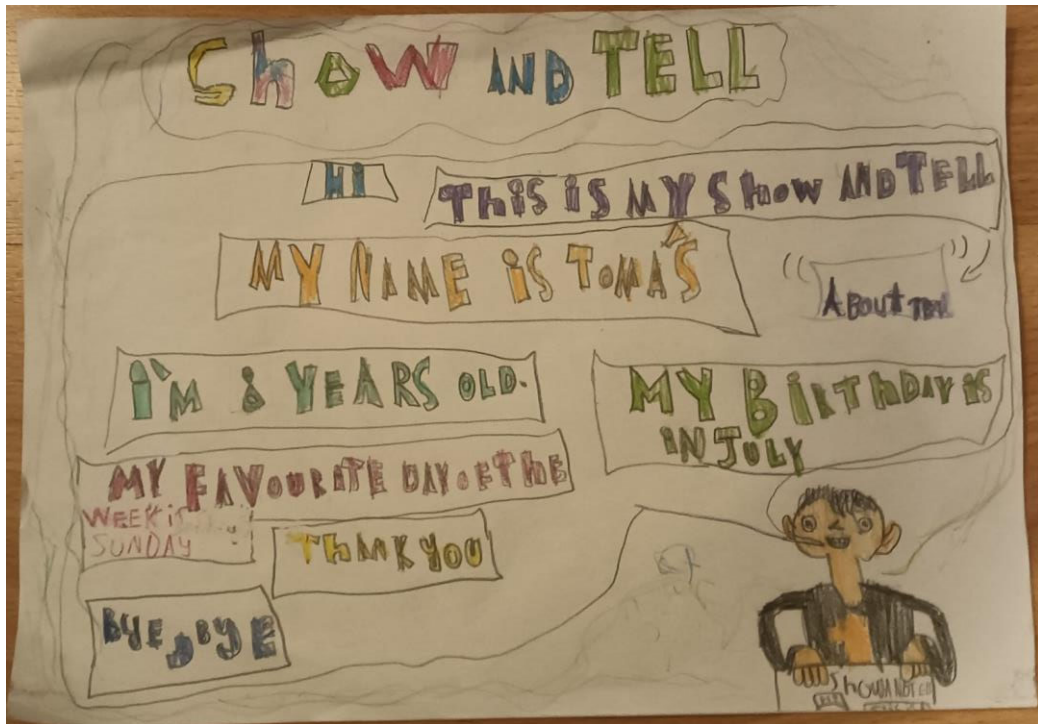 Show AND TELL
Hi
This is MY Show AND TELL
MY NAME iS TOMÁS
ABOUT
I'M 8 YEARS OLD.
MY BiRThDAY iS
iN JULY
MY FAVOURITE DAY OF The
WEEK iS
SUNDAY
ThANK YOU
BYE BYE
Show AND